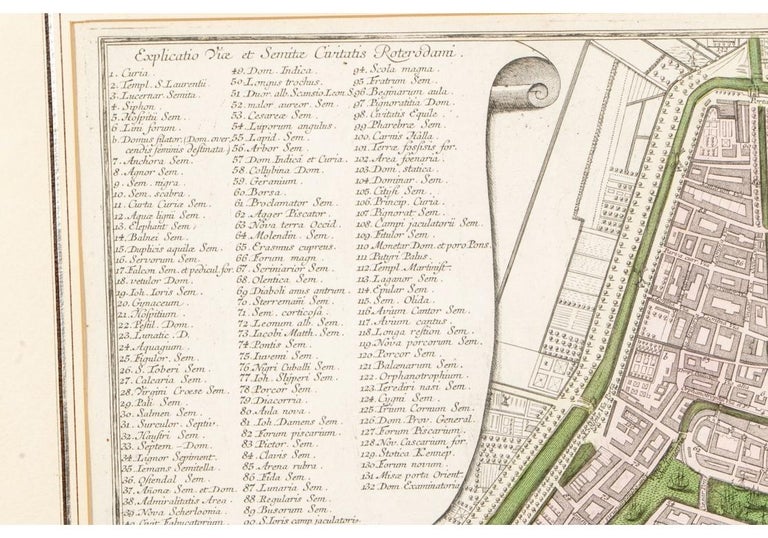 Explicatio Viæ et Semitæ Civitatis Roterodami.
1. Curia.
2. Templ. S. Laurentii.
3. Lucernar. Semita.
4. Siphon.
5. Hospitii Sem.
6. Lini forum.
b. Domus filator. (Dom. over
cendis feminis destinata.)
7. Anchora Sem.
8. Agnor Sem.
9. Sem. nigra.
10. Sem. scabra.
11. Curta Curiæ Sem.
12. Aquæ ligni Sem.
13. Elephant Sem.
14. Balnei Sem.
15. Duplicis aquilæ Sem.
16. Servorum Sem.
17. Falcon Sem. et pedicul. for.
18. vetulor Dom.
19. Ioh. Ioris Sem.
20. Gynaceum.
21. Hospitium.
22. Pestil. Dom.
23. Lunatic. D.
24. Aquagium.
25. Figulor. Sem.
26. S. Toberi Sem.
27. Calcaria Sem.
28. Virgini Croese Sem.
29. Pali Sem.
30. Salmen Sem.
31. Surculor. Septiv.
32. Haustri Sem.
33. Septem-Dom.
34. Lignor Sepiment.
35. Lemans Semitella.
36. Ostendal Sem.
37. Añonæ Sem. et Dom.
38. Admiralitatis Area.
39. Nova Scherloonia.
40. Civit. Fabricatorium.
49. Dom. Indica.
50. Longus trochus.
51. Ducir. alb. Scansio Leon S.
52. malor aureor Sem.
53. Cesareæ Sem.
54. Luporum angulus.
55. Lapid. Sem.
56. Arbor Sem.
57. Dom. Indica et Curia.
58. Collubina Dom.
59. Geranium.
60. Borsa.
61. Proclamator Sem.
62. Agger Piscator.
63. Nova terra Occid.
64. Molendin. Sem.
65. Erasmus cupreus.
66. Forum magn.
67. Scriniarior Sem.
68. Olentica Sem.
69. Diaboli anus antrum.
70. Sterremañ Sem.
71. Sem. corticosa.
72. Leonum alb. Sem.
73. Iacobi Matth. Sem.
74. Pontis Sem.
75. Iuvemi Sem.
76. Nigri Cuballi Sem.
77. Ioh. Slyperi Sem.
78. Porcor Sem.
79. Diacorria.
80. Aula nova.
81. Ioh. Damens Sem.
82. Forum piscarium.
83. Pictor. Sem.
84. Clavis Sem.
85. Arena rubra.
86. Fida Sem.
87. Lunaria Sem.
88. Regularis Sem.
89. Busorum Sem.
90. S. Ioris camp. jaculatoris
94. Scola magna.
95. Fratrum Sem.
96. Beginarum aula.
97. Pignoratitia Dom.
98. Civitatis Equile.
99. Pharebræ Sem.
100. Carnis Hälla.
101. Terræ fossisis for.
102. Area foenaria.
103. Dom. statica.
104. Dominar. Sem.
105. Citysi Sem.
106. Princip. Curia.
107. Pignorat Sem.
108. Campi jaculatorii Sem.
109. Fusor Sem.
110. Monetar Dom. et poro Pons.
111. Putyri Palus.
112. Templ. Martinist.
113. Laganor Sem.
114. Epular Sem.
115. Sem. Olida.
116. Avium Cantor Sem.
117. Avium cantus.
118. Longa restion Sem.
119. Nova porcorum Sem.
120. Porcor Sem.
121. Balænarum Sem.
122. Orphanotrophium.
123. Teredini nasi Sem.
124. Cygni Sem.
125. Trium Cornum Sem.
126. Dom. Prov. General.
127. Forum Piscarium.
128. Nov. Cascarium for.
129. Stotica Kennep.
130. Forum novum.
131. Misæ porta Orient.
132. Dom. Examinatoria.